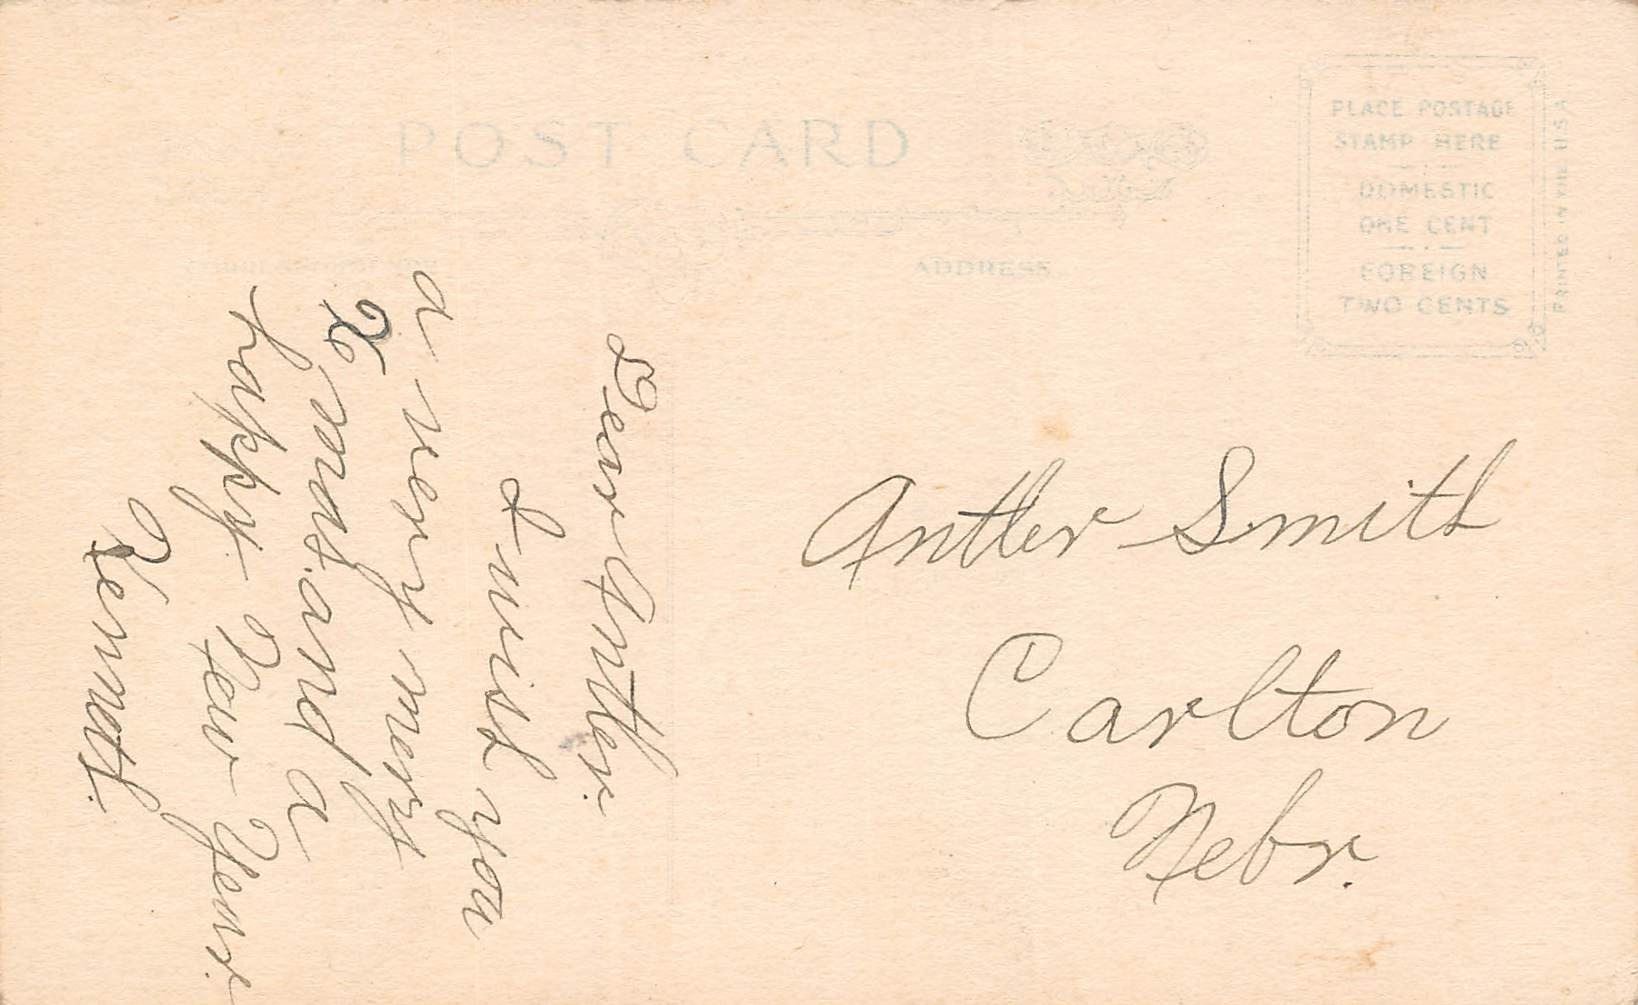 POST CARD
PLACE POSTAGE
STAMP HERE
DOMESTIC
ONE CENT
FOREIGN
TWO CENTS
PRINTED IN THE U.S.A.
ADDRESS
Dear Antler.
I wish you
a very merry
Xmas. and a
happy New Year.
Kennoth.
Antler Smith
Carlton
Nebr.